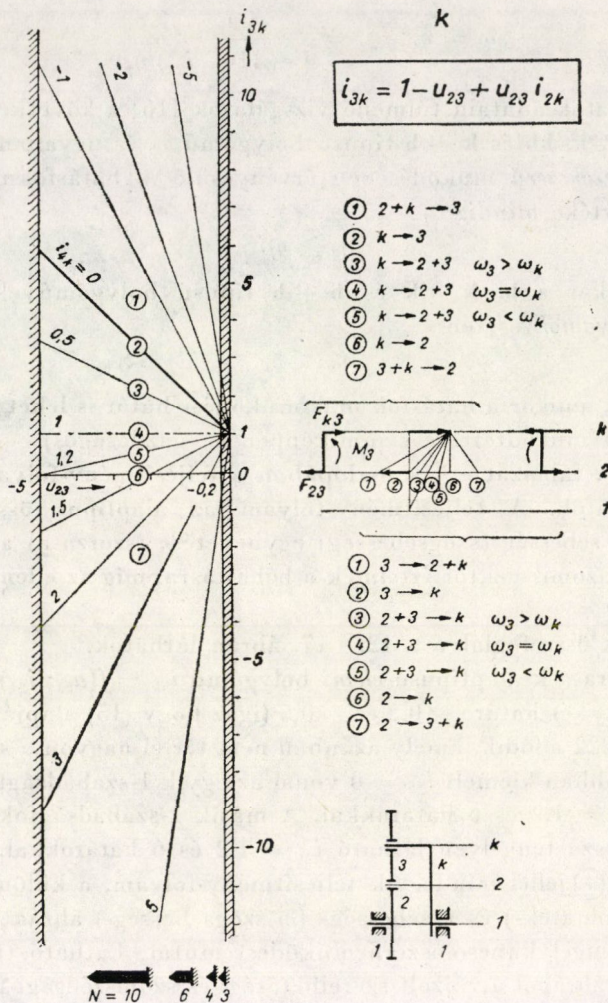 k
i3k
i3k = 1-u23 + u23 i2k
-1
-2
-5
10
5
1
0
-5
-10
i4k = 0
0,5
1
1,2
1,5
2
3
5
-5
u23
-0,2
① ② ③ ④ ⑤ ⑥ ⑦
① 2+k → 3
② k → 3
③ k → 2+3 ω3 > ωk
④ k → 2+3 ω3 = ωk
⑤ k → 2+3 ω3 < ωk
⑥ k → 2
⑦ 3+k → 2
Fk3
k
M3
2
F23
① ② ③ ④ ⑤ ⑥ ⑦
1
① 3 → 2+k
② 3 → k
③ 2+3 → k ω3 > ωk
④ 2+3 → k ω3 = ωk
⑤ 2+3 → k ω3 < ωk
⑥ 2 → k
⑦ 2 → 3+k
k
3 k
2
2
1
1 1
N = 10 6 4 3